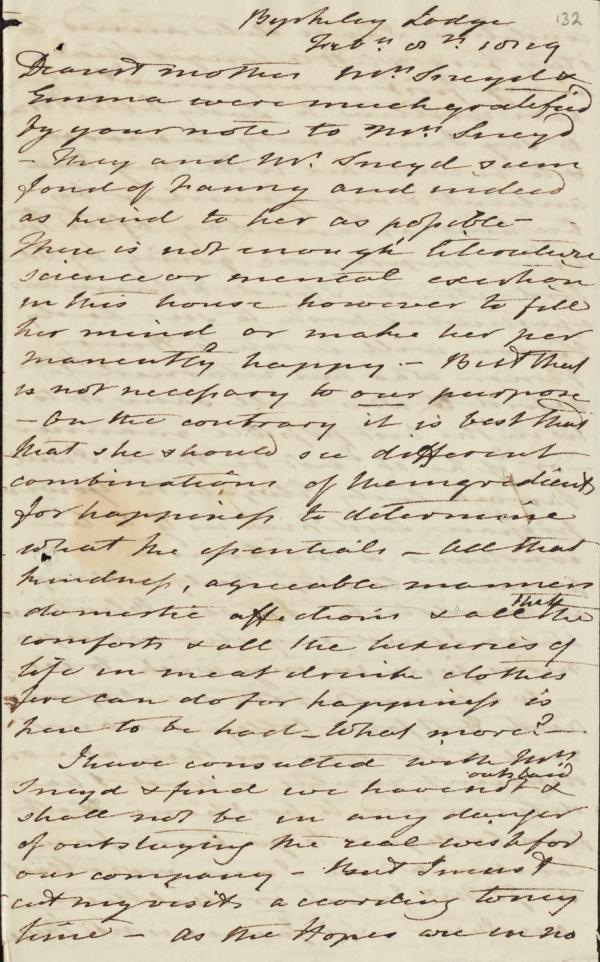 Byrkeley Lodge 132
Feb.y 8th 1819
Dearest mother Mrs Sneyd &
Emma were much gratified
by your note to Mrs Sneyd
- They and Mr. Sneyd seem
fond of Fanny and indeed
as kind to her as possible -
There is not enough literature
science or mental exertion
in this house however to fill
her mind or make her per
manently happy - But that
is not necessary to our purpose
- On the contrary it is best that
that she should see different
combinations of the ingredients
for happiness to determine
what the essentials - All that
kindness, agreeable manners
domestic affections & all the
comforts & all the luxuries of
life in meat drink clothes
we can do for happiness is
here to be had - What more? -
I have consulted with Mrs
Sneyd & find we have not outstaid &
shall not be in any danger
of outstaying the real wish for
our company - But I must
cut my visits according to my
time - As the Hopes are in no